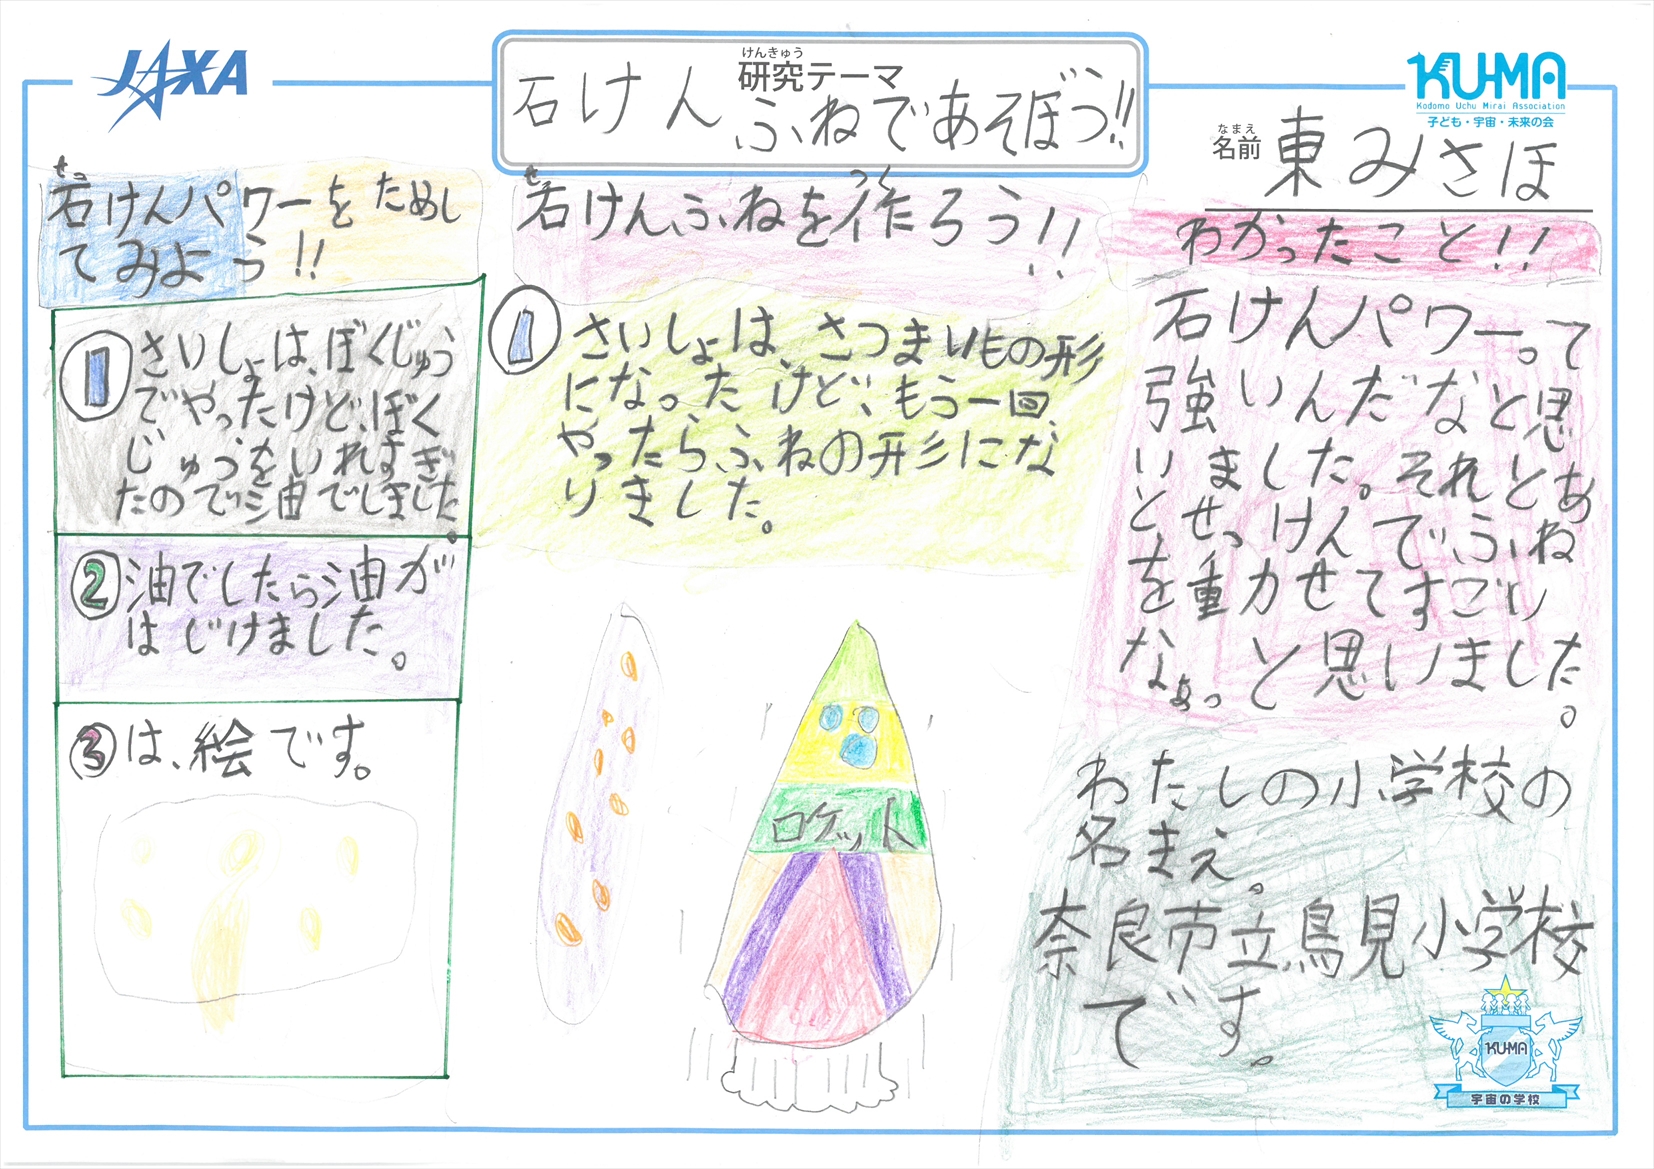 JAXA
けんきゅう
研究テーマ
石けん
ふねであそぼう!!
KU-MA
Kodomo Uchu Mirai Association
子ども・宇宙・未来の会
なまえ
名前
東みさほ
せっ
石けんパワーをためし
てみよう!!
①さいしょは、ぼくじゅう
でやったけど、ぼく
じゅうをいれすぎ
たので油でしました。
②油でしたら油が
はじけました。
③は、絵です。
せっ
つく
石けんふねを作ろう!!
①さいしょは、さつまいもの形
になったけど、もう一回
やったらふねの形にな
りました。
ロケット
わかったこと!!
石けんパワーって
強いんだなと思
いました。それとあ
とせっけんでふね
を重かせてすごい
なぁっと思いました。
わたしの小学校の
名まえ。
奈良市立鳥見小学校
です。
KU-MA
宇宙の学校